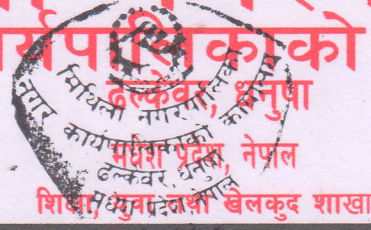 र्यपालिकाको
ढल्केवर, धनुषा
मधेश प्रदेश, नेपाल
शिक्षा, युवा तथा खेलकुद शाखा
मिथिला नगरपालिका
नगर कार्यपालिकाको कार्यालय
ढल्केवर, धनुषा
मधेश प्रदेश, नेपाल